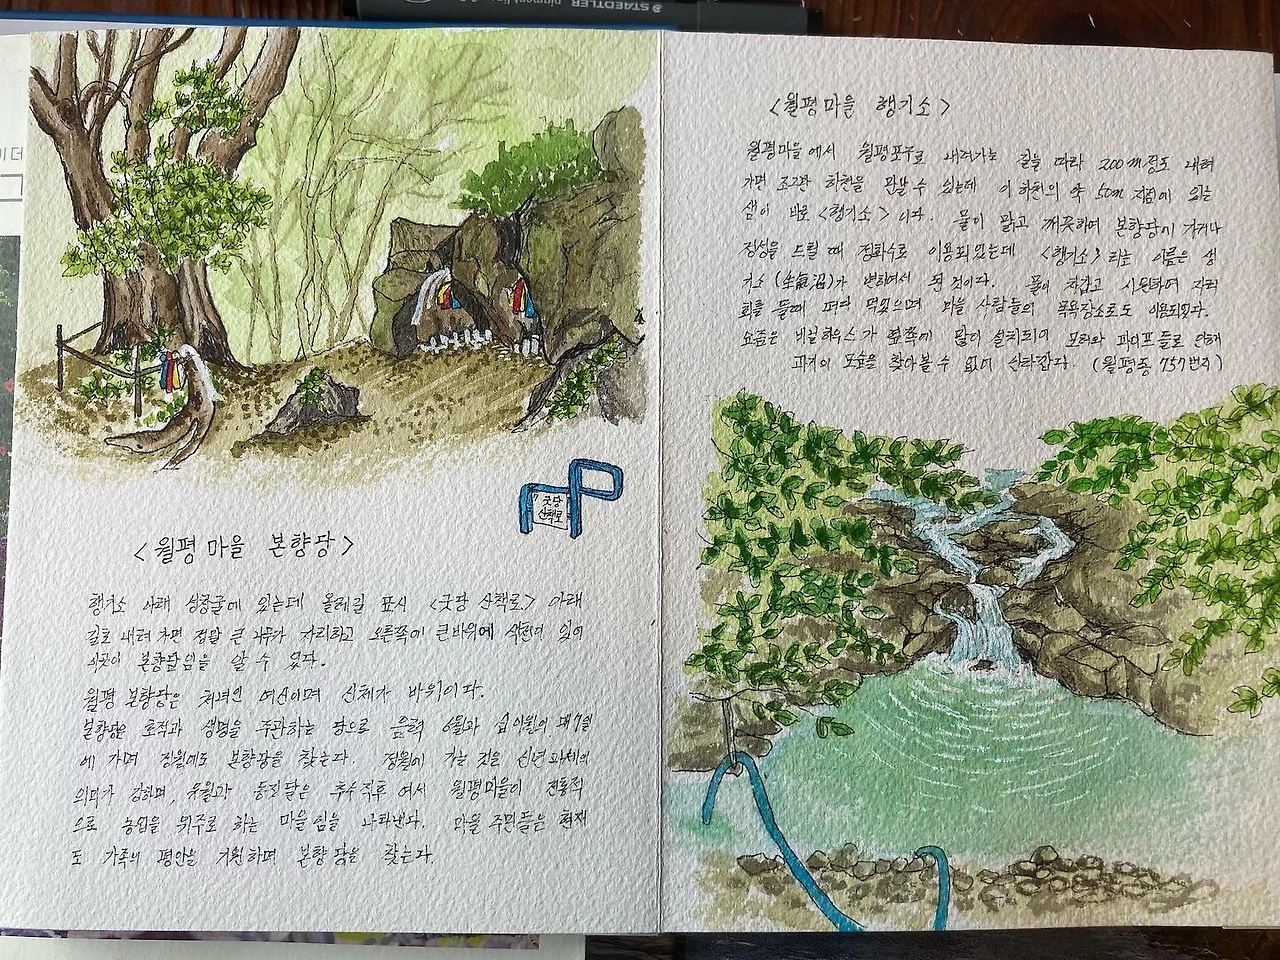 STAEDTLER
pigment liner
이 더
굿당
산책로
<월평 마을 본향당>
행기소 아래 성창골에 있는데 올레길 표시 <굿당 산책로> 아래
길로 내려가면 정말 큰 나무가 자리하고 오른쪽에 큰바위에 있어
이곳이 본향당임을 알 수 있다.
월평 본향당은 처녀인 여신이며 신체가 바위이다.
본향당은 호적과 생명을 주관하는 당으로 음력 6월과 십이월의 매7일
에 가며 정월에도 본향당을 찾는다. 정월에 가는 것은 신년과세의
의미가 강하며, 유월과 동짓달은 추수직후 여서 월평마을이 전통적
으로 농업을 위주로 하는 마을임을 나타낸다. 마을 주민들은 현재
도 가족의 평안을 기원하며 본향당을 찾는다.
<월평 마을 행기소>
월평마을에서 월평포구로 내려가는 길을 따라 200m정도 내려
가면 조그만 하천을 만날 수 있는데 이 하천의 약 50m 지점에 있는
샘이 바로 <행기소> 이다. 물이 맑고 깨끗하여 본향당에 가거나
정성을 드릴 때 정화수로 이용되었는데 <행기소>라는 이름은 생
기소(生氣沼)가 변하여서 된 것이다. 물이 차갑고 시원하여 자리
회를 들때 떠다 먹었으며 마을 사람들의 목욕장소로도 이용되었다.
요즘은 비닐하우스가 위쪽에 많이 설치되어 모터와 파이프들로 인해
과거의 모습을 찾아볼 수 없어 안타깝다. (월평동 757번지)